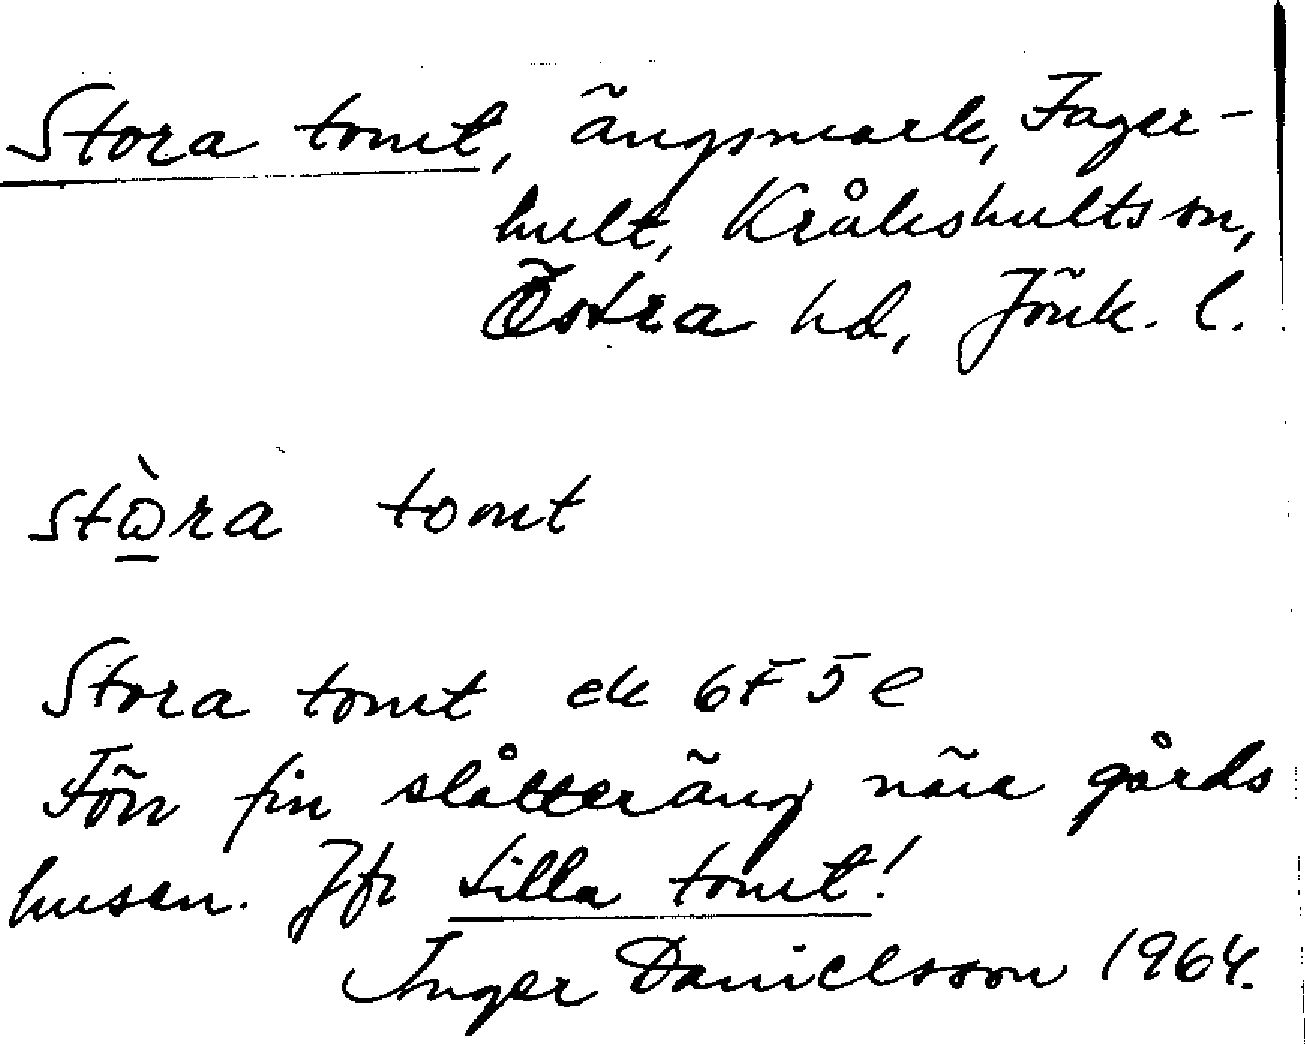 Stora tomt, ängsmark, Fager-
hult, Kråkshults sn,
Östra hd, Jönk. l.
stò̲ra tomt
Stora tomt ek 6F5e
Förr fin slåtteräng nära gårds
husen. Jfr Lilla tomt!
Inger Danielsson 1964.